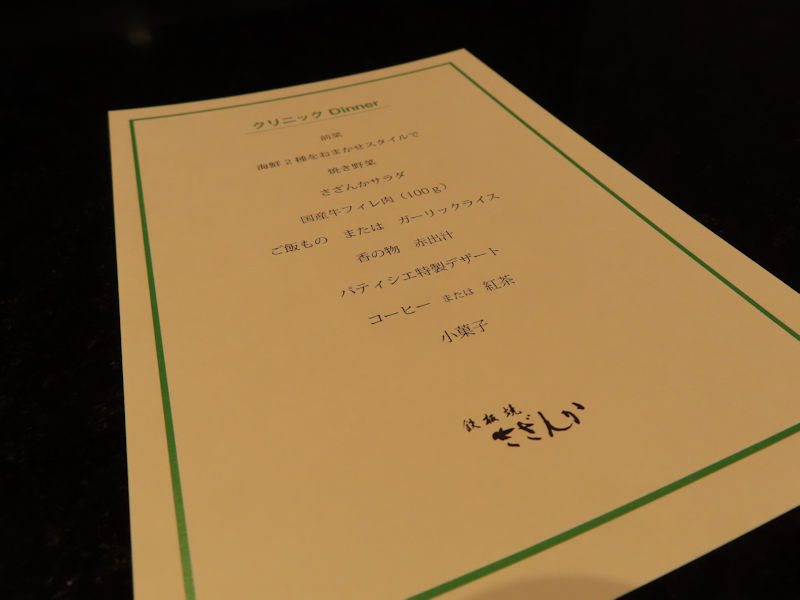 クリニック Dinner
前菜
海鮮2種をおまかせスタイルで
焼き野菜
さざんかサラダ
国産牛フィレ肉（100g）
ご飯もの または ガーリックライス
香の物 赤出汁
パティシエ特製デザート
コーヒー または 紅茶
小菓子
鉄板焼
さざんか